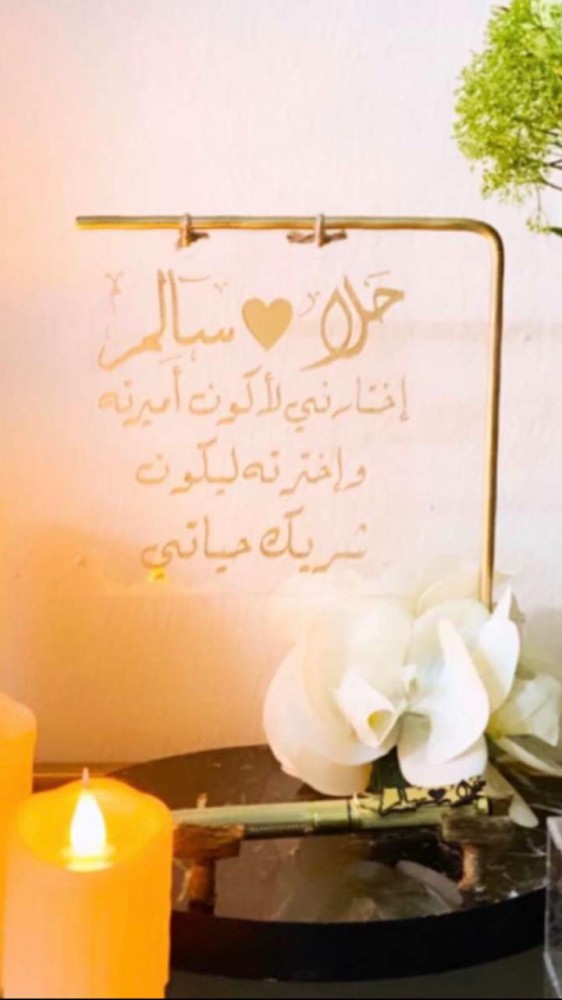 حلا ♥ سالم
إختارني لأكون أميرته
وإخترته ليكون
شريك حياتي